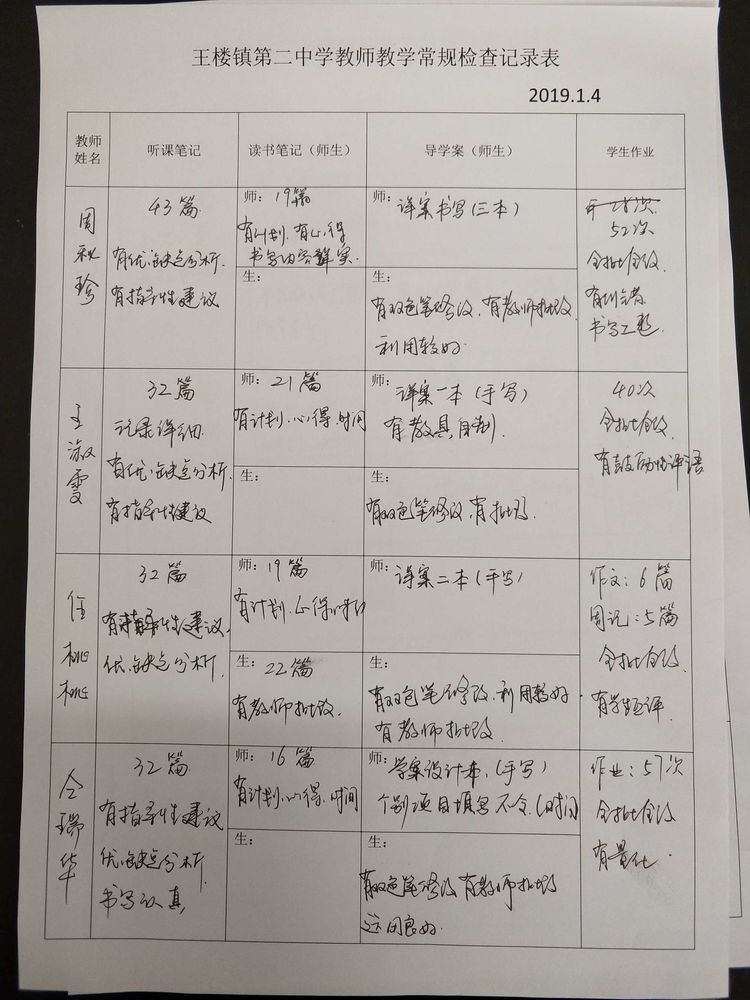 王楼镇第二中学教师教学常规检查记录表
2019.1.4
教师姓名
听课笔记
读书笔记（师生）
导学案（师生）
学生作业
周秋珍
43篇
有优、缺点分析.
有指导性建议
师：19篇
有计划.有心得
书写内容详实.
生：
师：详案书写(三本)
生：
有双色笔修改、有教师批改
利用较好.
52次
全批全改.
书写工整
王淑雯
32篇
记录详细.
有优、缺点分析.
有指导性建议
师：21篇
有计划.心得.时间
生：
师：详案一本(手写)
有教具自制.
生：
有双色笔修改,有批改.
40次
全批全改.
有鼓励性评语
任桃桃
32篇
有指导性建议.
优、缺点分析.
师：19篇
有计划.心得.时间
生：22篇
有教师批改.
师：详案二本(手写)
生：
有双色笔修改.利用较好.
有教师批改
作文：6篇
周记：5篇
全批全改.
有学生互评.
仝瑞华
32篇.
有指导性建议
优、缺点分析.
书写认真
师：16篇
有计划.心得.时间
生：
师：学案设计本.(手写)
个别项目填写不全.(时间)
生：
有双色笔修改,有教师批改
运用良好.
作业：57次
全批全改
有量化.